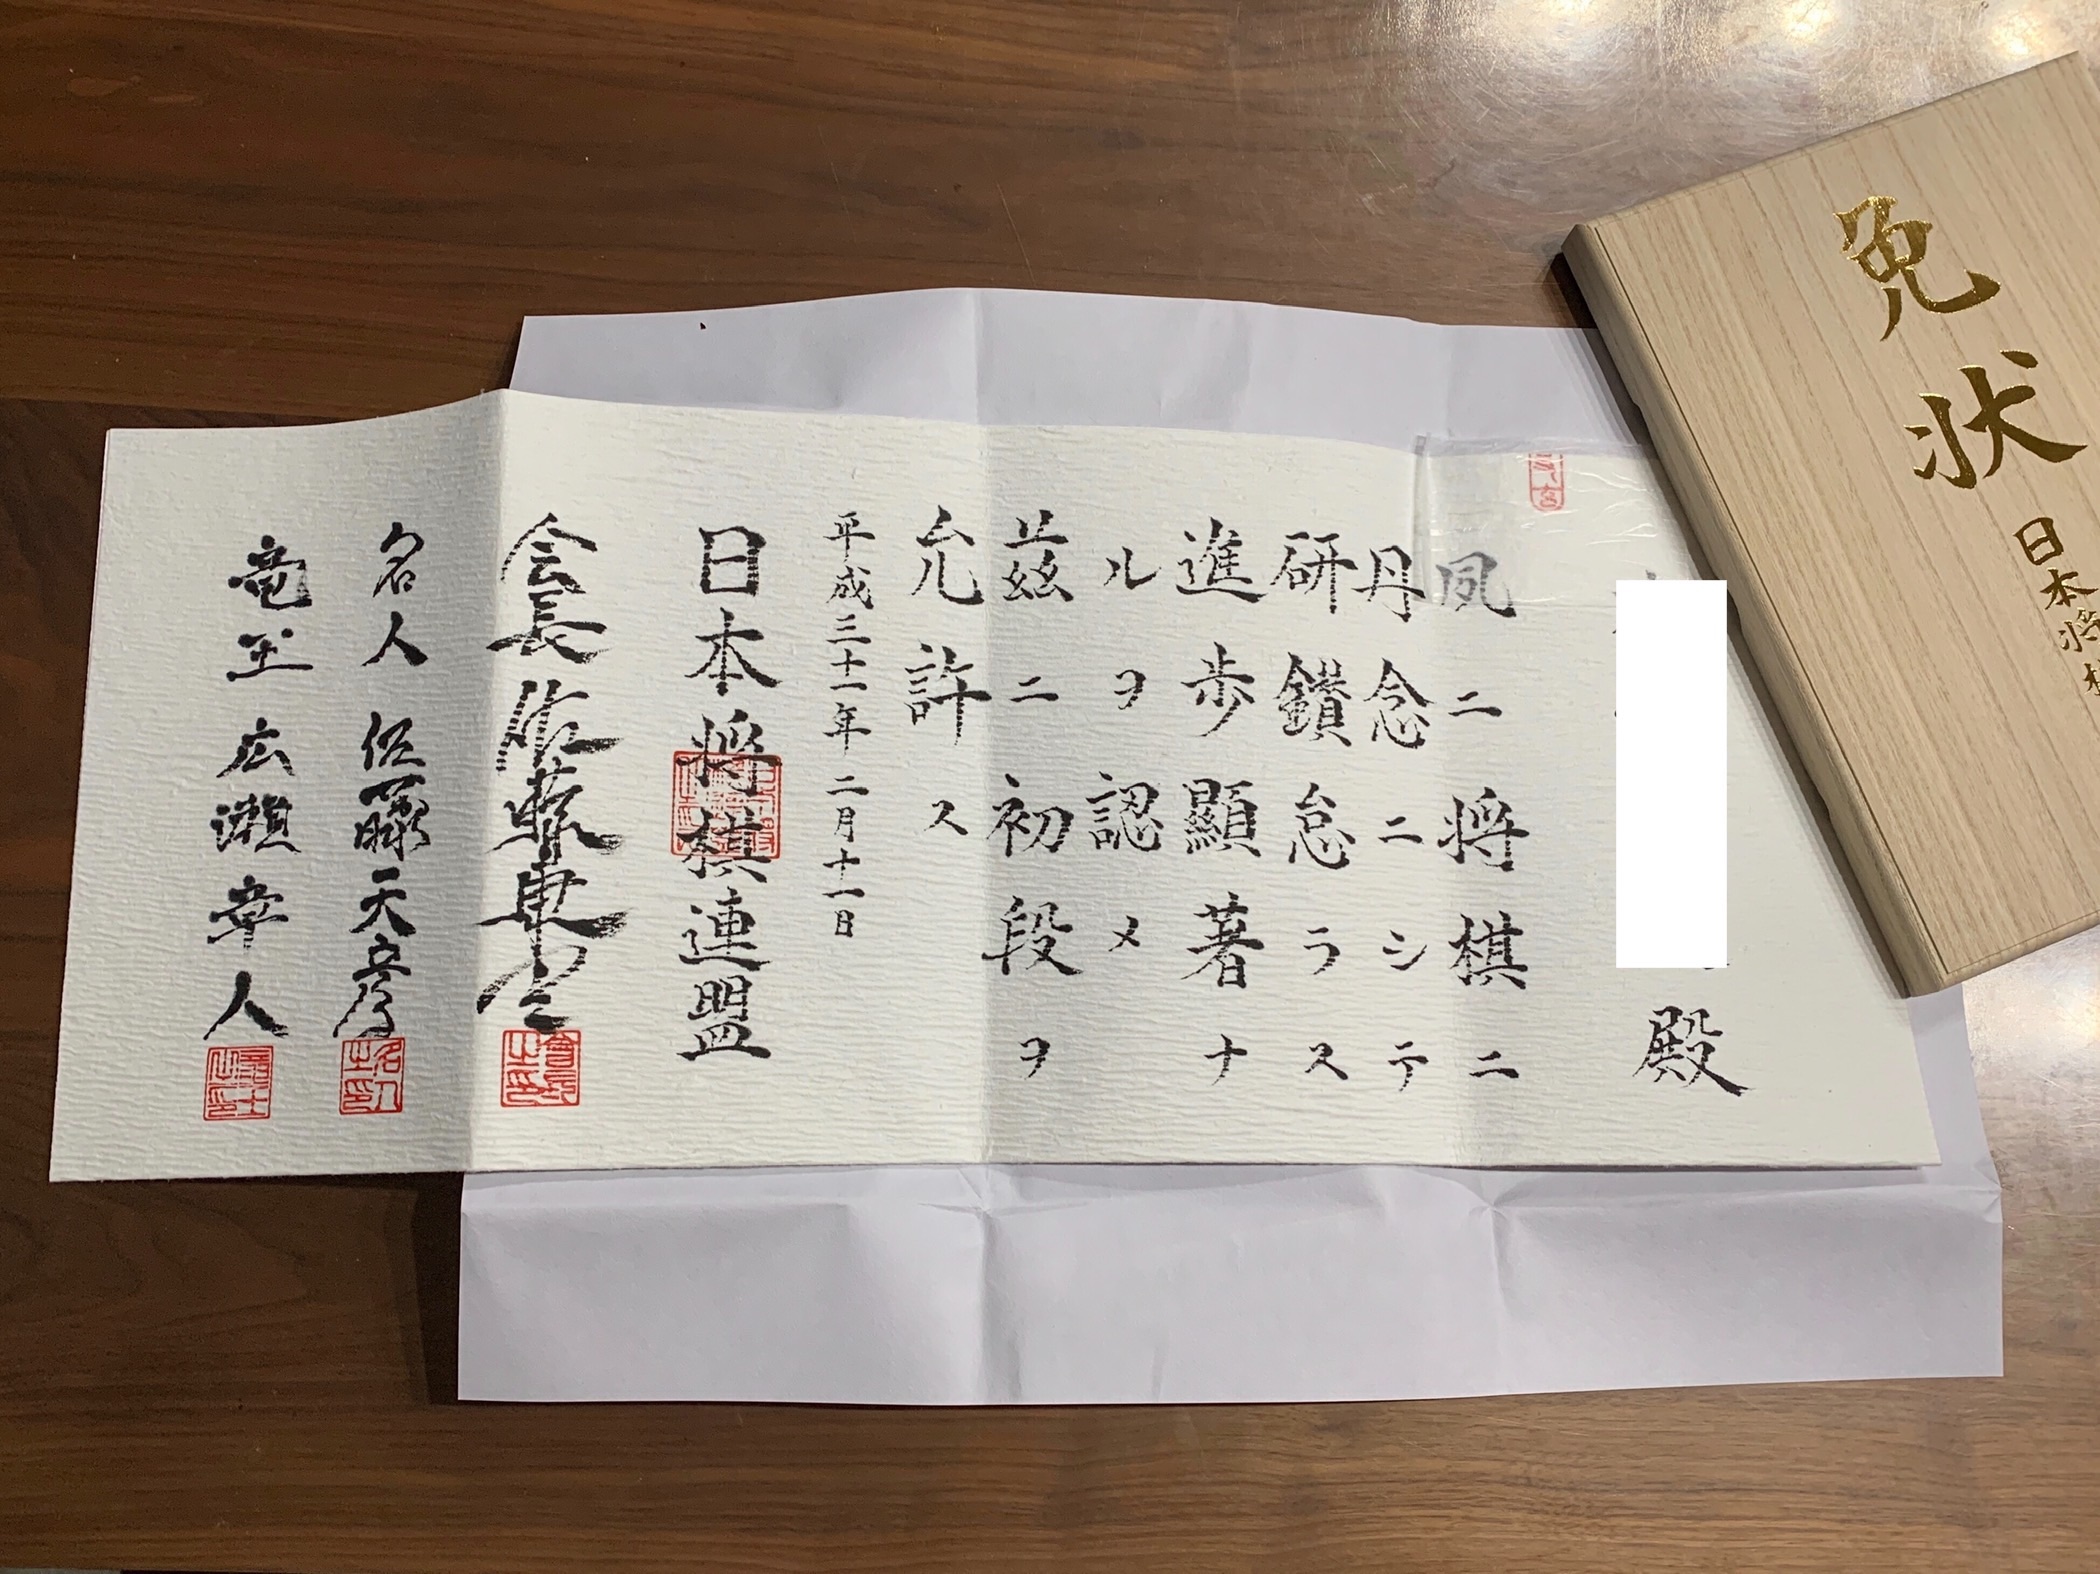 免状
日本将棋
殿
夙ニ将棋ニ
丹念ニシテ
研鑚怠ラス
進歩顯著ナ
ルヲ認メ
茲ニ初段ヲ
允許ス
平成三十一年二月十一日
日本将棋連盟
会長佐藤康光
名人佐藤天彦
竜王広瀬章人